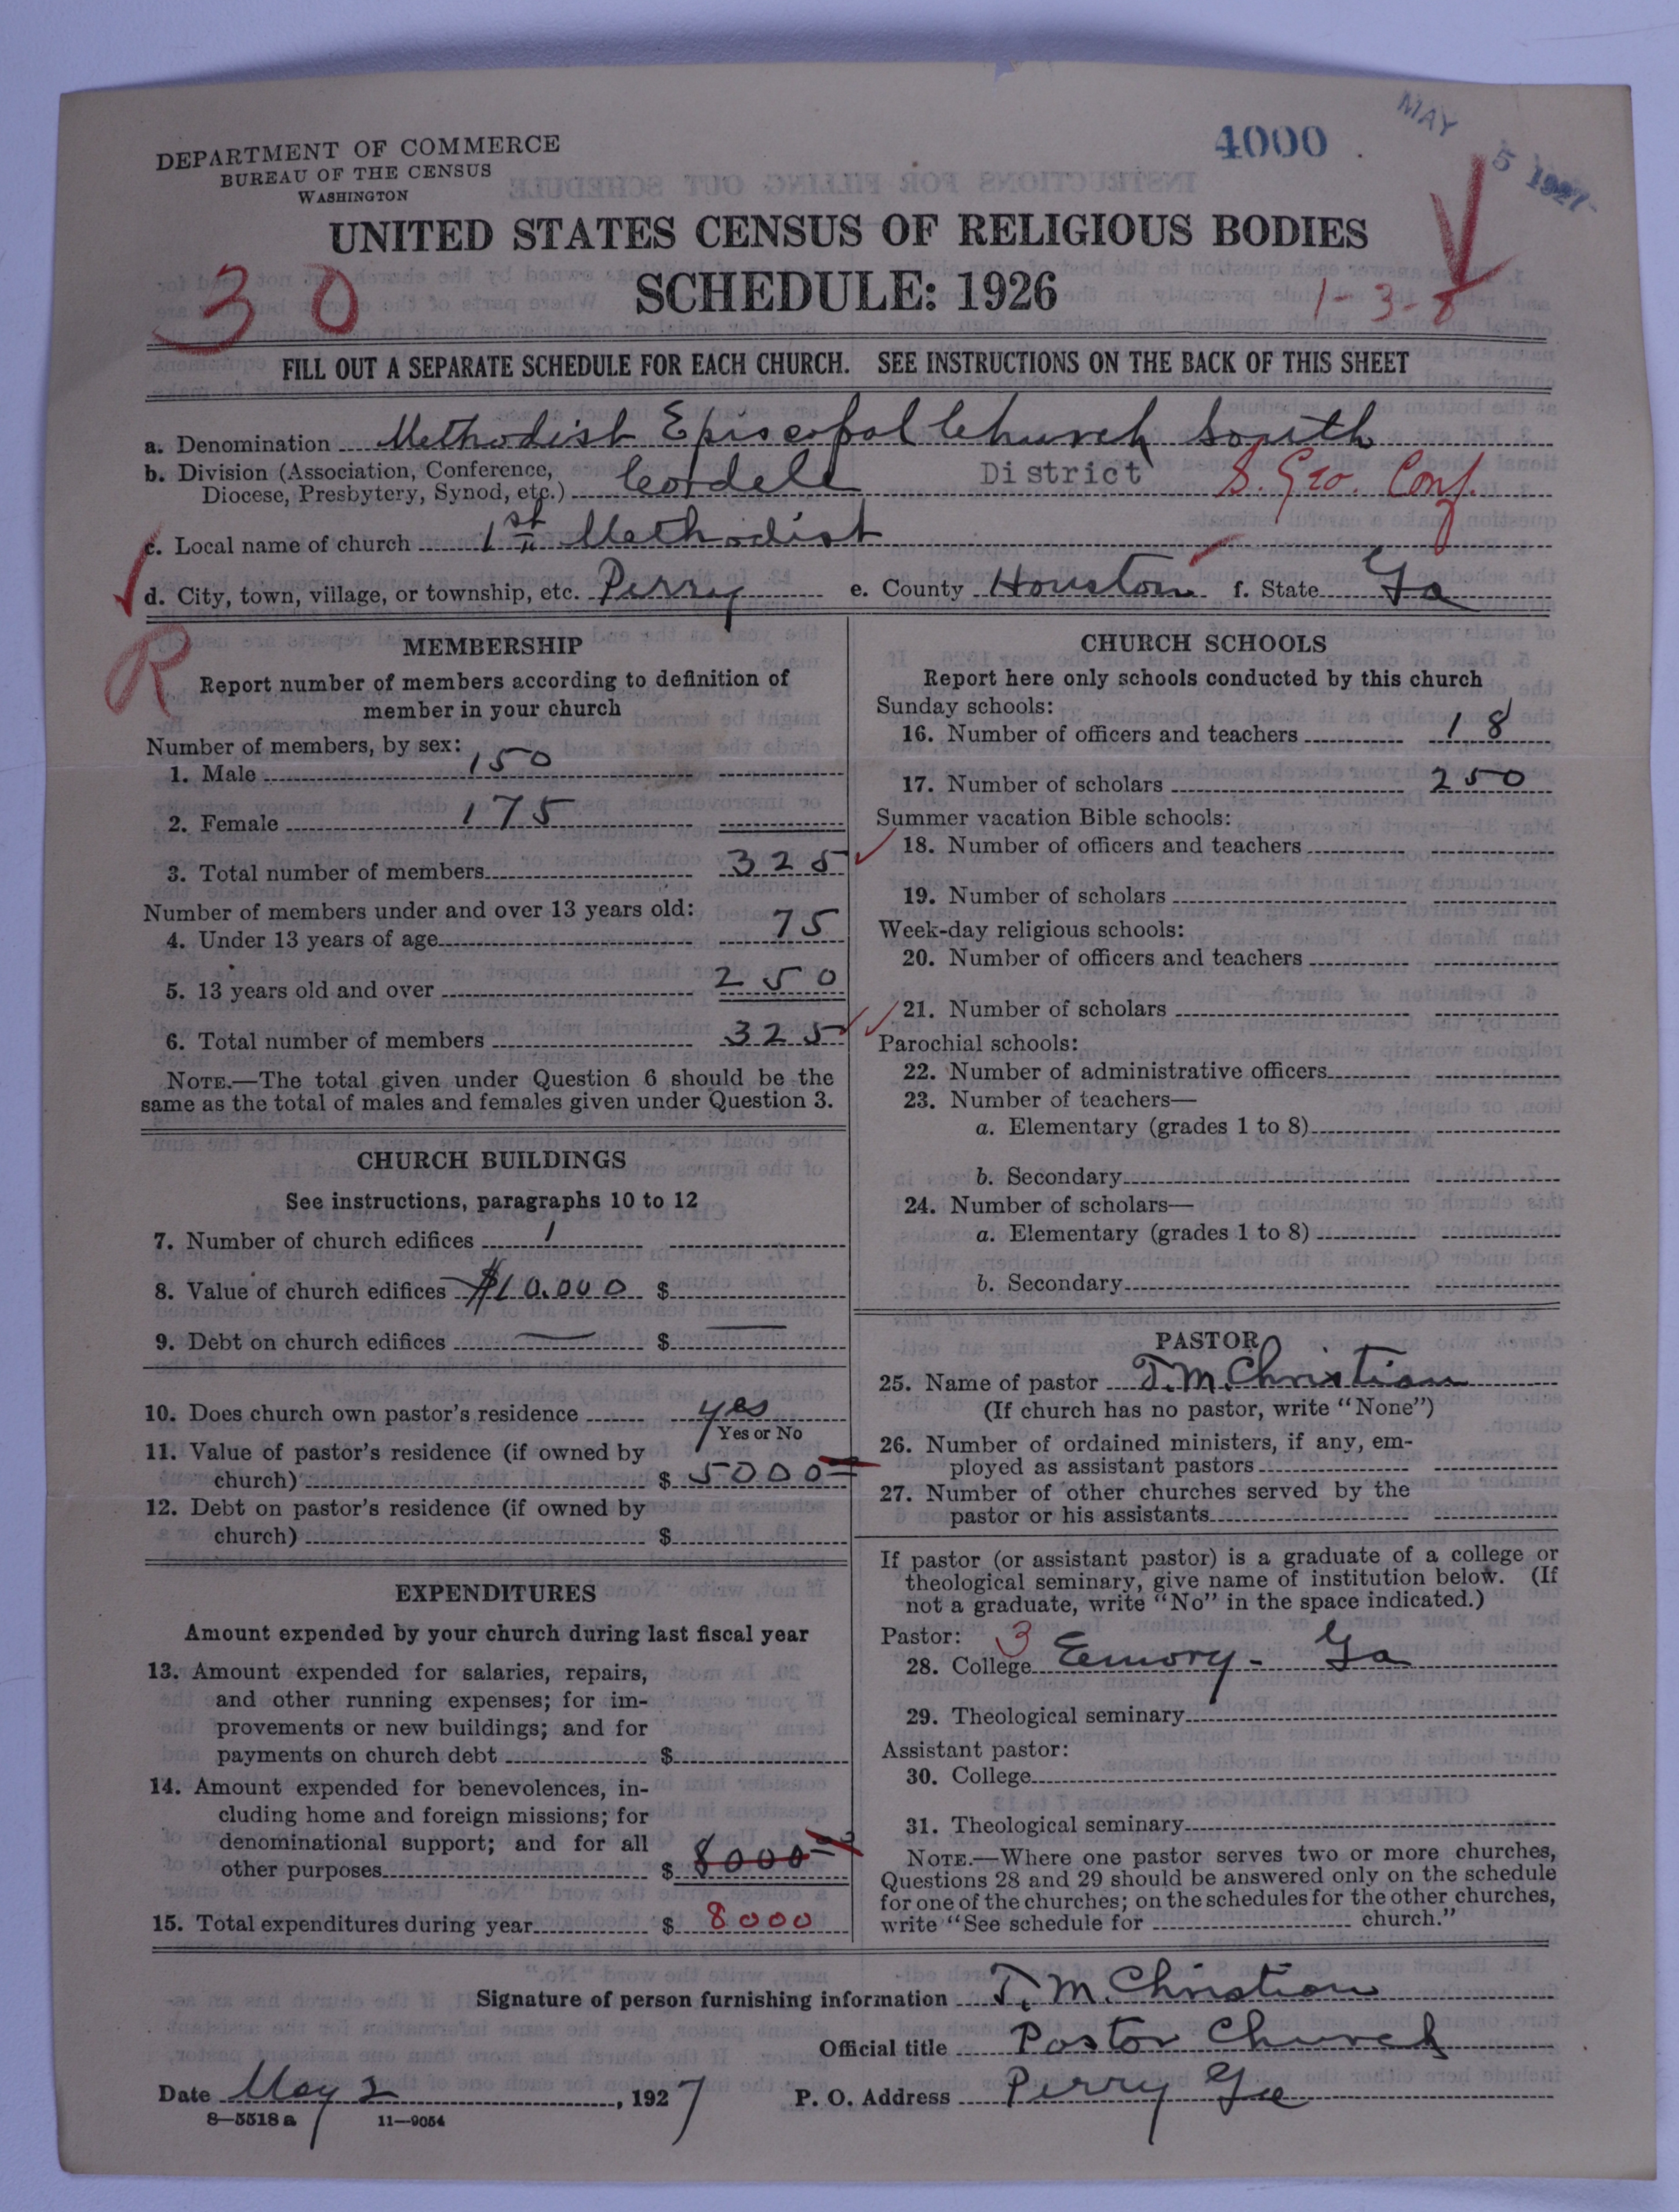 DEPARTMENT OF COMMERCE
BUREAU OF THE CENSUS
WASHINGTON
4000
MAY 5 1927
UNITED STATES CENSUS OF RELIGIOUS BODIES
SCHEDULE: 1926
30
1-3-8
FILL OUT A SEPARATE SCHEDULE FOR EACH CHURCH. SEE INSTRUCTIONS ON THE BACK OF THIS SHEET
a. Denomination Methodist Episcopal Church South
b. Division (Association, Conference,
Diocese, Presbytery, Synod, etc.) Cordele District S. Geo. Conf.
c. Local name of church 1st Methodist
d. City, town, village, or township, etc. Perry e. County Houston f. State Ga
R
MEMBERSHIP
Report number of members according to definition of
member in your church
Number of members, by sex:
1. Male 150
2. Female 175
3. Total number of members 325
Number of members under and over 13 years old:
4. Under 13 years of age 75
5. 13 years old and over 250
6. Total number of members 325
NOTE.—The total given under Question 6 should be the
same as the total of males and females given under Question 3.
CHURCH BUILDINGS
See instructions, paragraphs 10 to 12
7. Number of church edifices 1
8. Value of church edifices $10.000 $
9. Debt on church edifices — $ —
10. Does church own pastor's residence yes
Yes or No
11. Value of pastor's residence (if owned by
church) $ 5000
12. Debt on pastor's residence (if owned by
church) $
EXPENDITURES
Amount expended by your church during last fiscal year
13. Amount expended for salaries, repairs,
and other running expenses; for im-
provements or new buildings; and for
payments on church debt $
14. Amount expended for benevolences, in-
cluding home and foreign missions; for
denominational support; and for all
other purposes $ 8000
15. Total expenditures during year $ 8000
CHURCH SCHOOLS
Report here only schools conducted by this church
Sunday schools:
16. Number of officers and teachers 18
17. Number of scholars 250
Summer vacation Bible schools:
18. Number of officers and teachers
19. Number of scholars
Week-day religious schools:
20. Number of officers and teachers
21. Number of scholars
Parochial schools:
22. Number of administrative officers
23. Number of teachers—
a. Elementary (grades 1 to 8)
b. Secondary
24. Number of scholars—
a. Elementary (grades 1 to 8)
b. Secondary
PASTOR
25. Name of pastor T. M. Christian
(If church has no pastor, write "None")
26. Number of ordained ministers, if any, em-
ployed as assistant pastors
27. Number of other churches served by the
pastor or his assistants
If pastor (or assistant pastor) is a graduate of a college or
theological seminary, give name of institution below. (If
not a graduate, write "No" in the space indicated.)
Pastor: 3
28. College Emory - Ga
29. Theological seminary
Assistant pastor:
30. College
31. Theological seminary
NOTE.—Where one pastor serves two or more churches,
Questions 28 and 29 should be answered only on the schedule
for one of the churches; on the schedules for the other churches,
write "See schedule for church."
Signature of person furnishing information T. M. Christian
Official title Pastor Church
Date May 2, 1927 P. O. Address Perry Ga
8—5518 a 11—9054